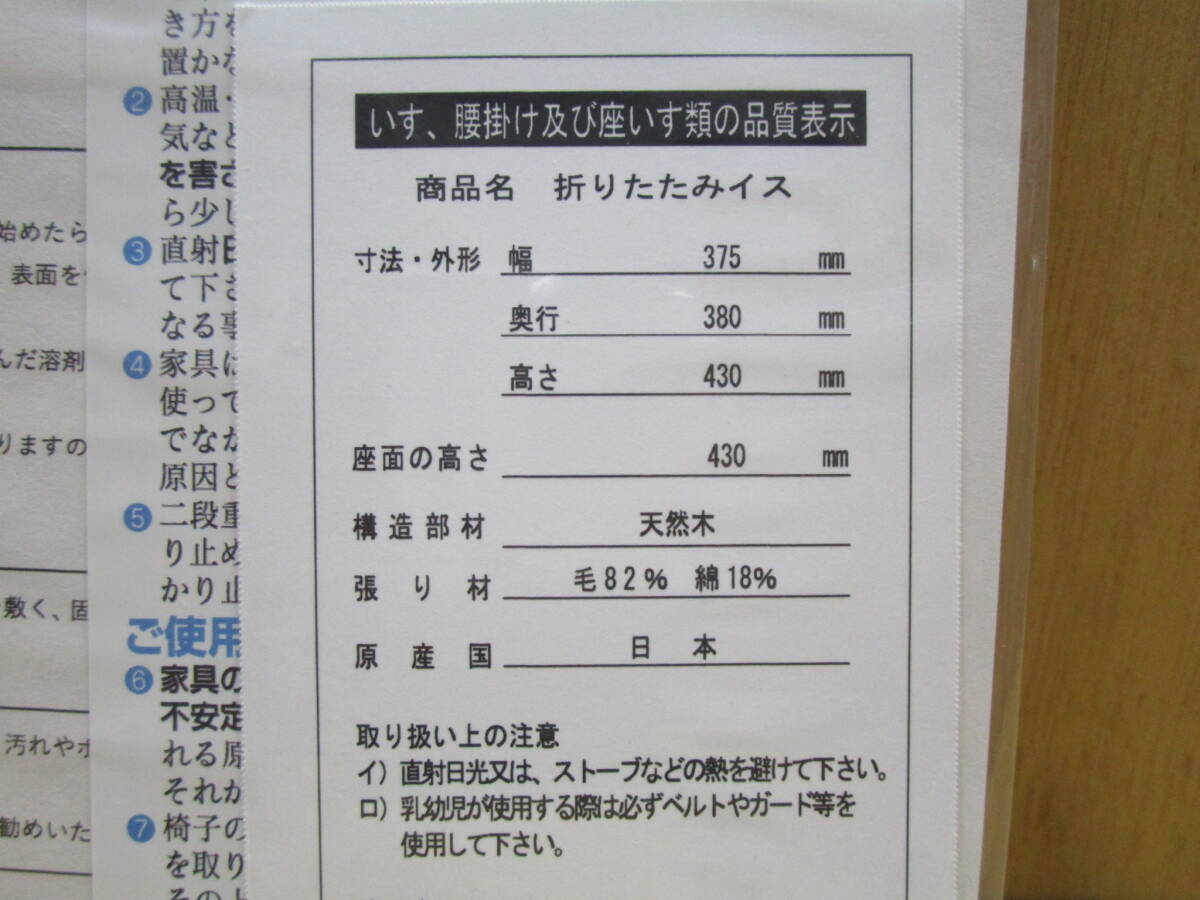 き方を
置かな
❷高温・
気など
を害さ
ら少し
❸直射日
て下さ
なる事
❹家具は
使って
でなか
原因と
❺二段重
り止め
かり止
ご使用
❻家具の
不安定
れる原
それが
❼椅子の
を取り
始めたら
表面を
んだ溶剤
りますの
敷く、固
汚れやホ
勧めいた
いす、腰掛け及び座いす類の品質表示
商品名 折りたたみイス
寸法・外形 幅 375 mm
奥行 380 mm
高さ 430 mm
座面の高さ 430 mm
構造部材 天然木
張り材 毛82% 綿18%
原産国 日本
取り扱い上の注意
イ) 直射日光又は、ストーブなどの熱を避けて下さい。
ロ) 乳幼児が使用する際は必ずベルトやガード等を
使用して下さい。